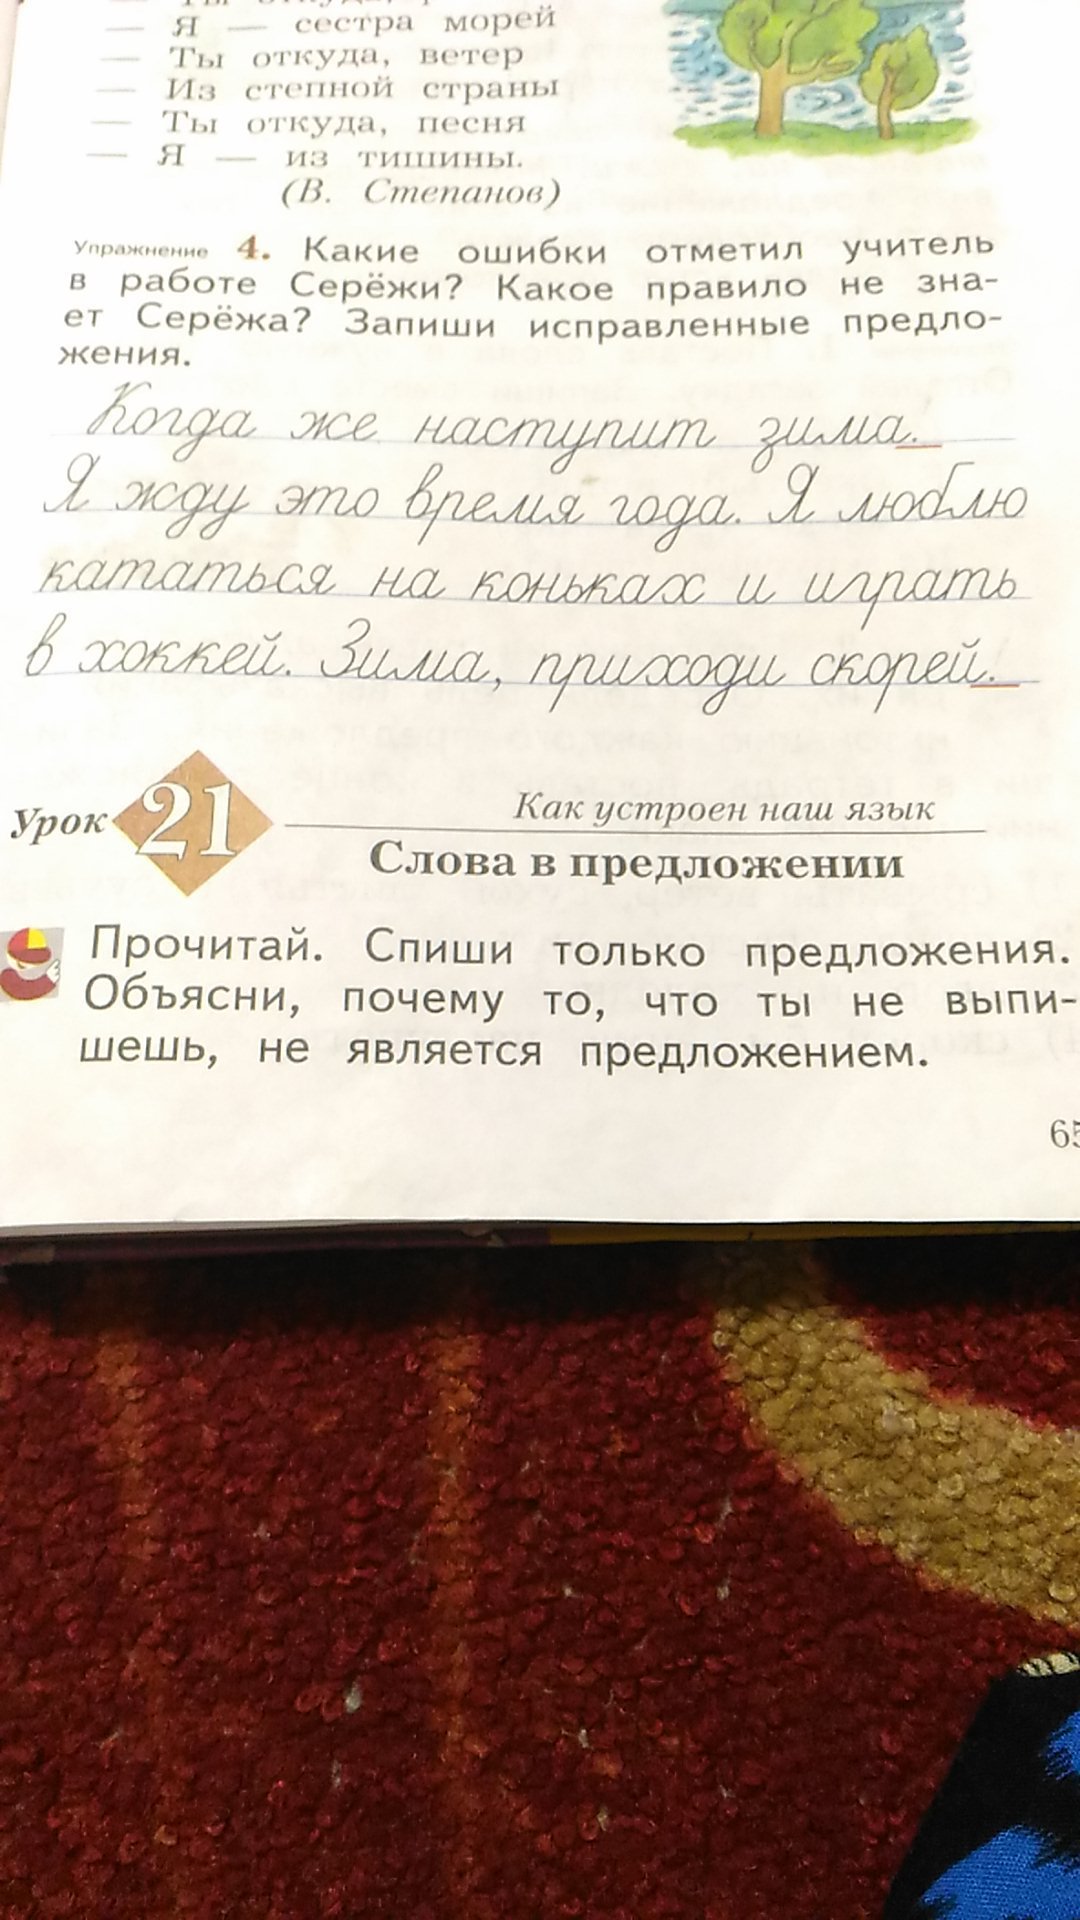 — Я — сестра морей
— Ты откуда, ветер
— Из степной страны
— Ты откуда, песня
— Я — из тишины.
(В. Степанов)
Упражнение 4. Какие ошибки отметил учитель
в работе Серёжи? Какое правило не зна-
ет Серёжа? Запиши исправленные предло-
жения.
Когда же наступит зима.
Я жду это время года. Я люблю
кататься на коньках и играть
в хоккей. Зима, приходи скорей.
Урок 21
Как устроен наш язык
Слова в предложении
Прочитай. Спиши только предложения.
Объясни, почему то, что ты не выпи-
шешь, не является предложением.
65